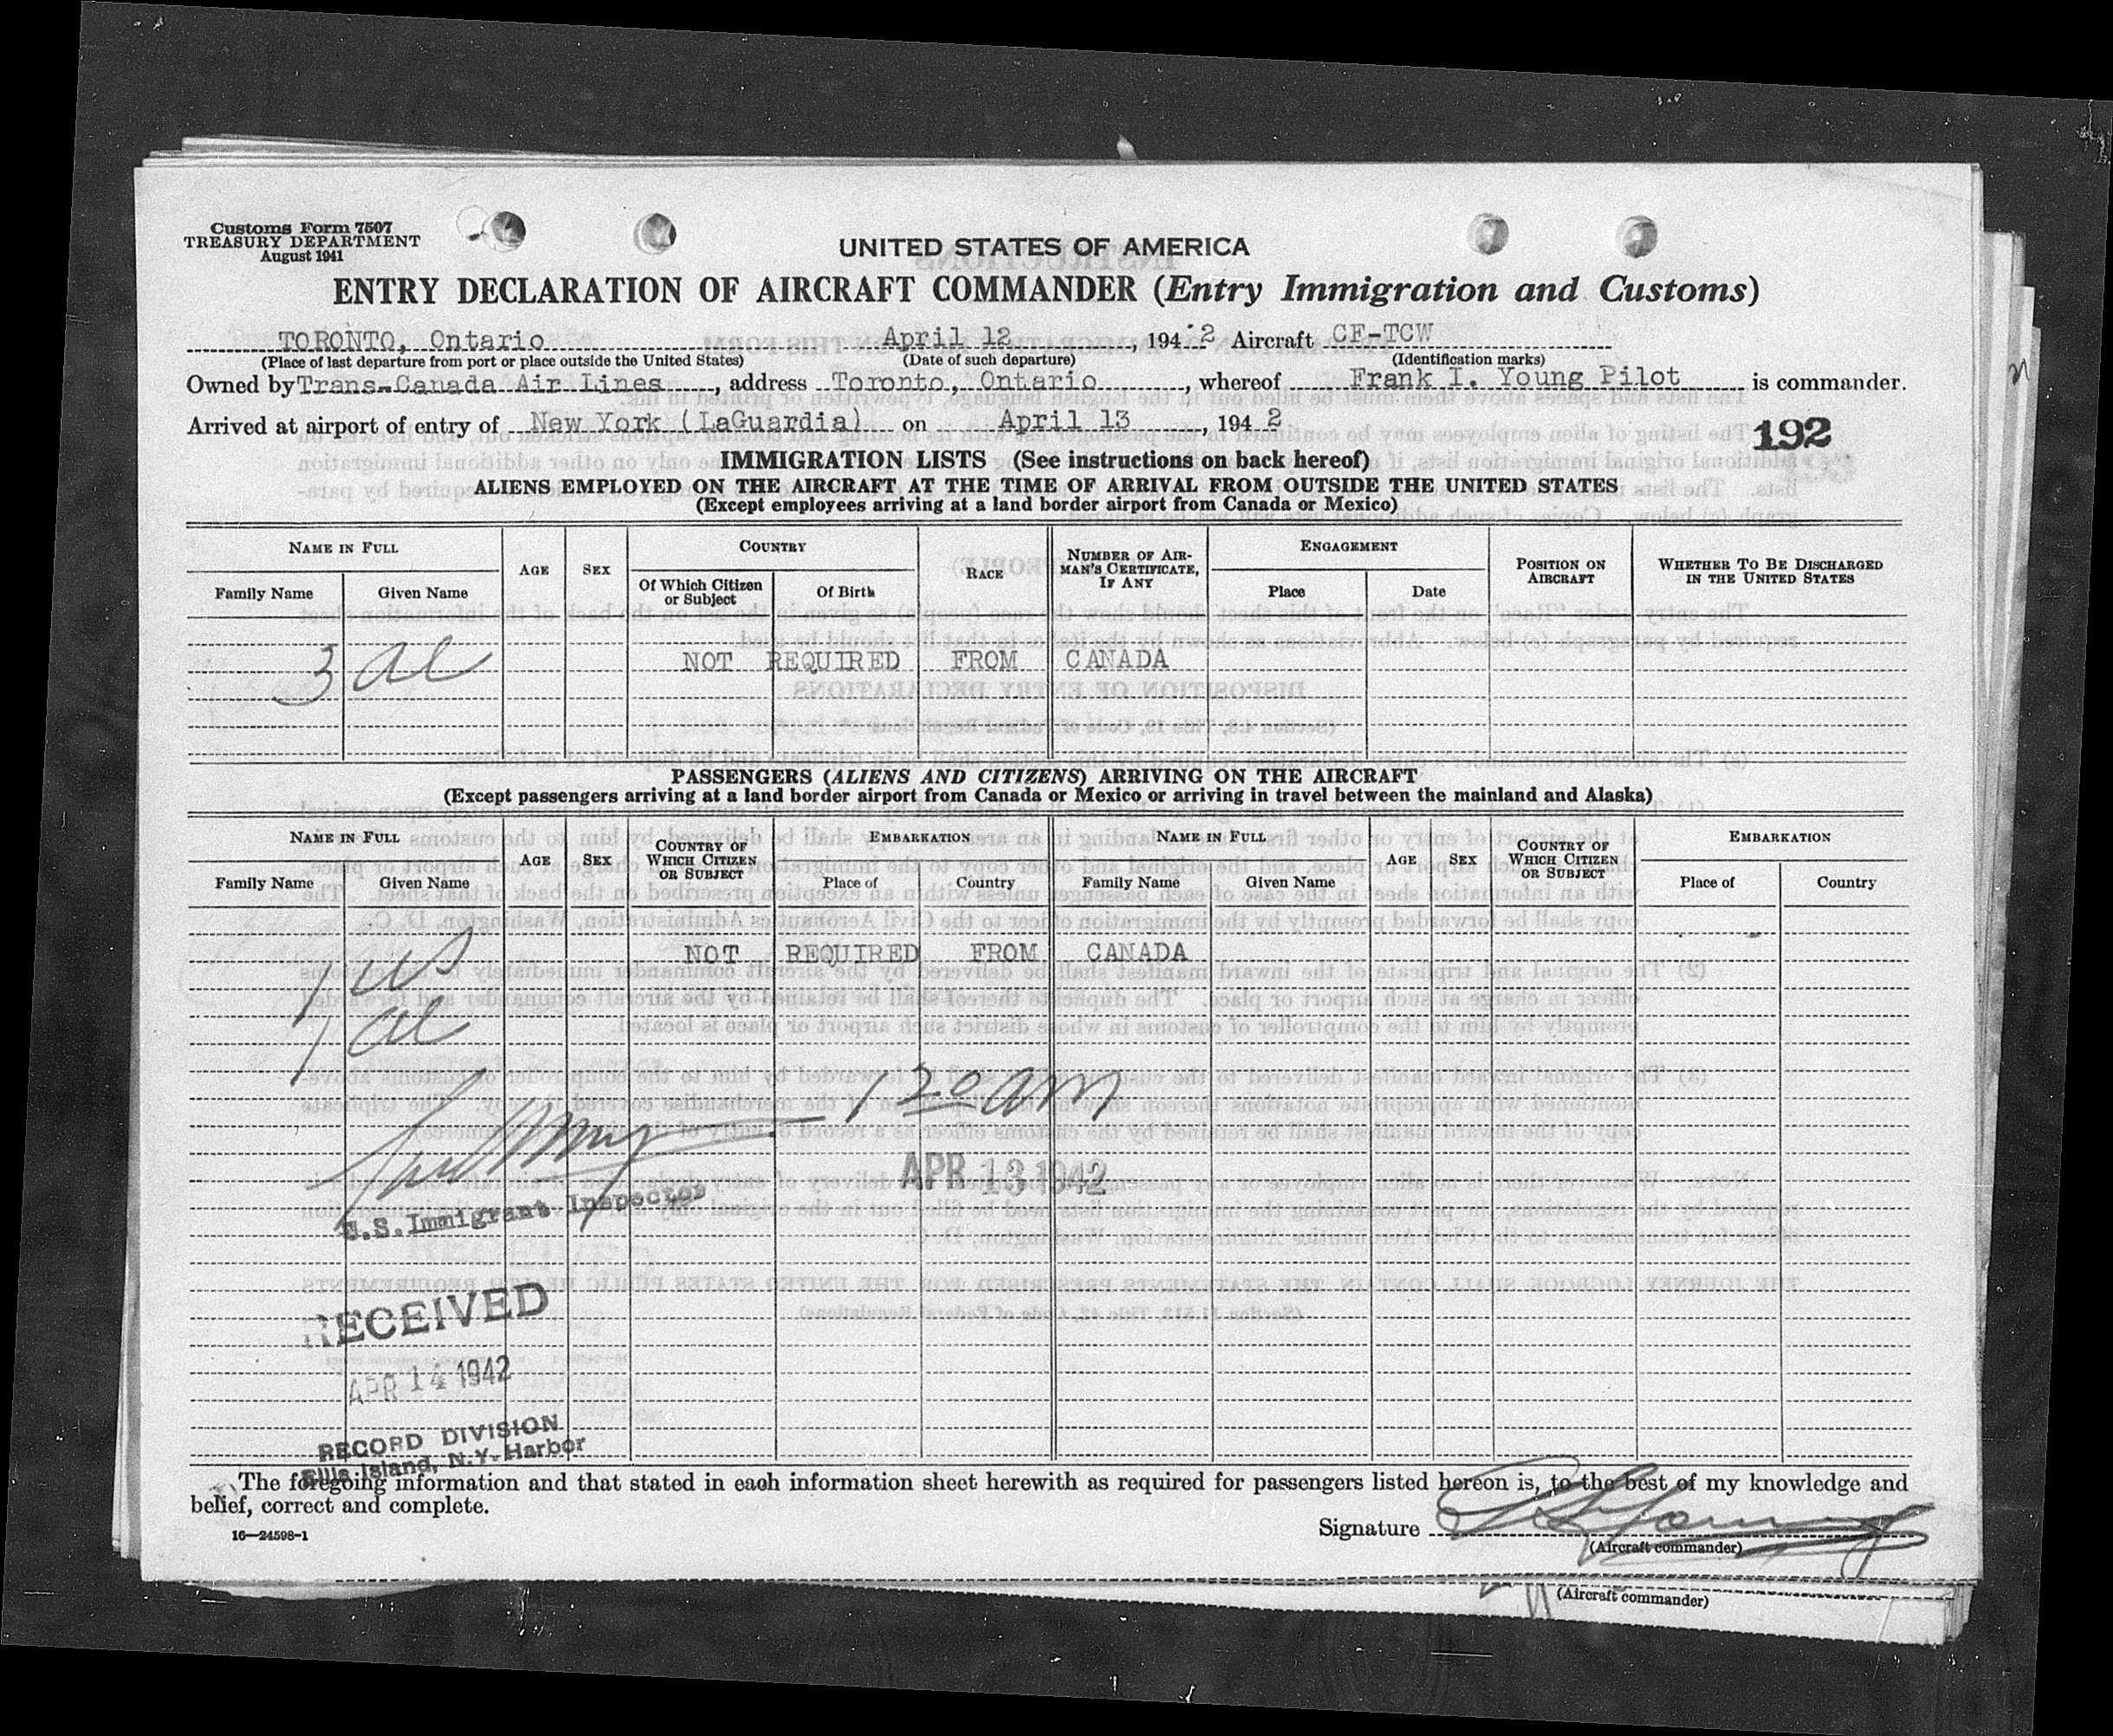 Customs Form 7507
TREASURY DEPARTMENT
August 1941
UNITED STATES OF AMERICA
ENTRY DECLARATION OF AIRCRAFT COMMANDER (Entry Immigration and Customs)
TORONTO, Ontario April 12, 1942 Aircraft CF-TCW
(Place of last departure from port or place outside the United States) (Date of such departure) (Identification marks)
Owned by Trans-Canada Air Lines, address Toronto, Ontario, whereof Frank I. Young Pilot is commander.
Arrived at airport of entry of New York (LaGuardia) on April 13, 1942
192
IMMIGRATION LISTS (See instructions on back hereof)
ALIENS EMPLOYED ON THE AIRCRAFT AT THE TIME OF ARRIVAL FROM OUTSIDE THE UNITED STATES
(Except employees arriving at a land border airport from Canada or Mexico)
NAME IN FULL AGE SEX COUNTRY RACE NUMBER OF AIRMAN'S CERTIFICATE, IF ANY ENGAGEMENT POSITION ON AIRCRAFT WHETHER TO BE DISCHARGED IN THE UNITED STATES
Family Name Given Name Of Which Citizen or Subject Of Birth Place Date
3 al NOT REQUIRED FROM CANADA
PASSENGERS (ALIENS AND CITIZENS) ARRIVING ON THE AIRCRAFT
(Except passengers arriving at a land border airport from Canada or Mexico or arriving in travel between the mainland and Alaska)
NAME IN FULL AGE SEX COUNTRY OF WHICH CITIZEN OR SUBJECT EMBARKATION NAME IN FULL AGE SEX COUNTRY OF WHICH CITIZEN OR SUBJECT EMBARKATION
Family Name Given Name Place of Country Family Name Given Name Place of Country
NOT REQUIRED FROM CANADA
1 us
1 al
1 20 am
APR 13 1942
U.S. Immigrant Inspector
RECEIVED
APR 14 1942
RECORD DIVISION
Ellis Island, N.Y. Harbor
The foregoing information and that stated in each information sheet herewith as required for passengers listed hereon is, to the best of my knowledge and
belief, correct and complete.
16—24598-1
Signature Young
(Aircraft commander)
(Aircraft commander)